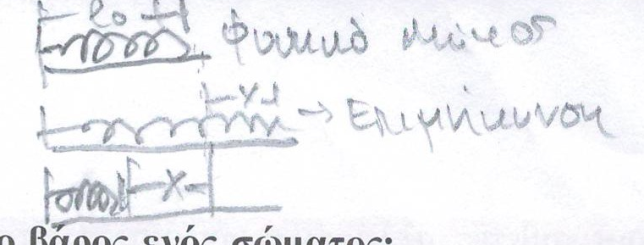 l₀
Φυσικό μήκος
x → Επιμήκυνση
x
ο βάρος ενός σώματος;